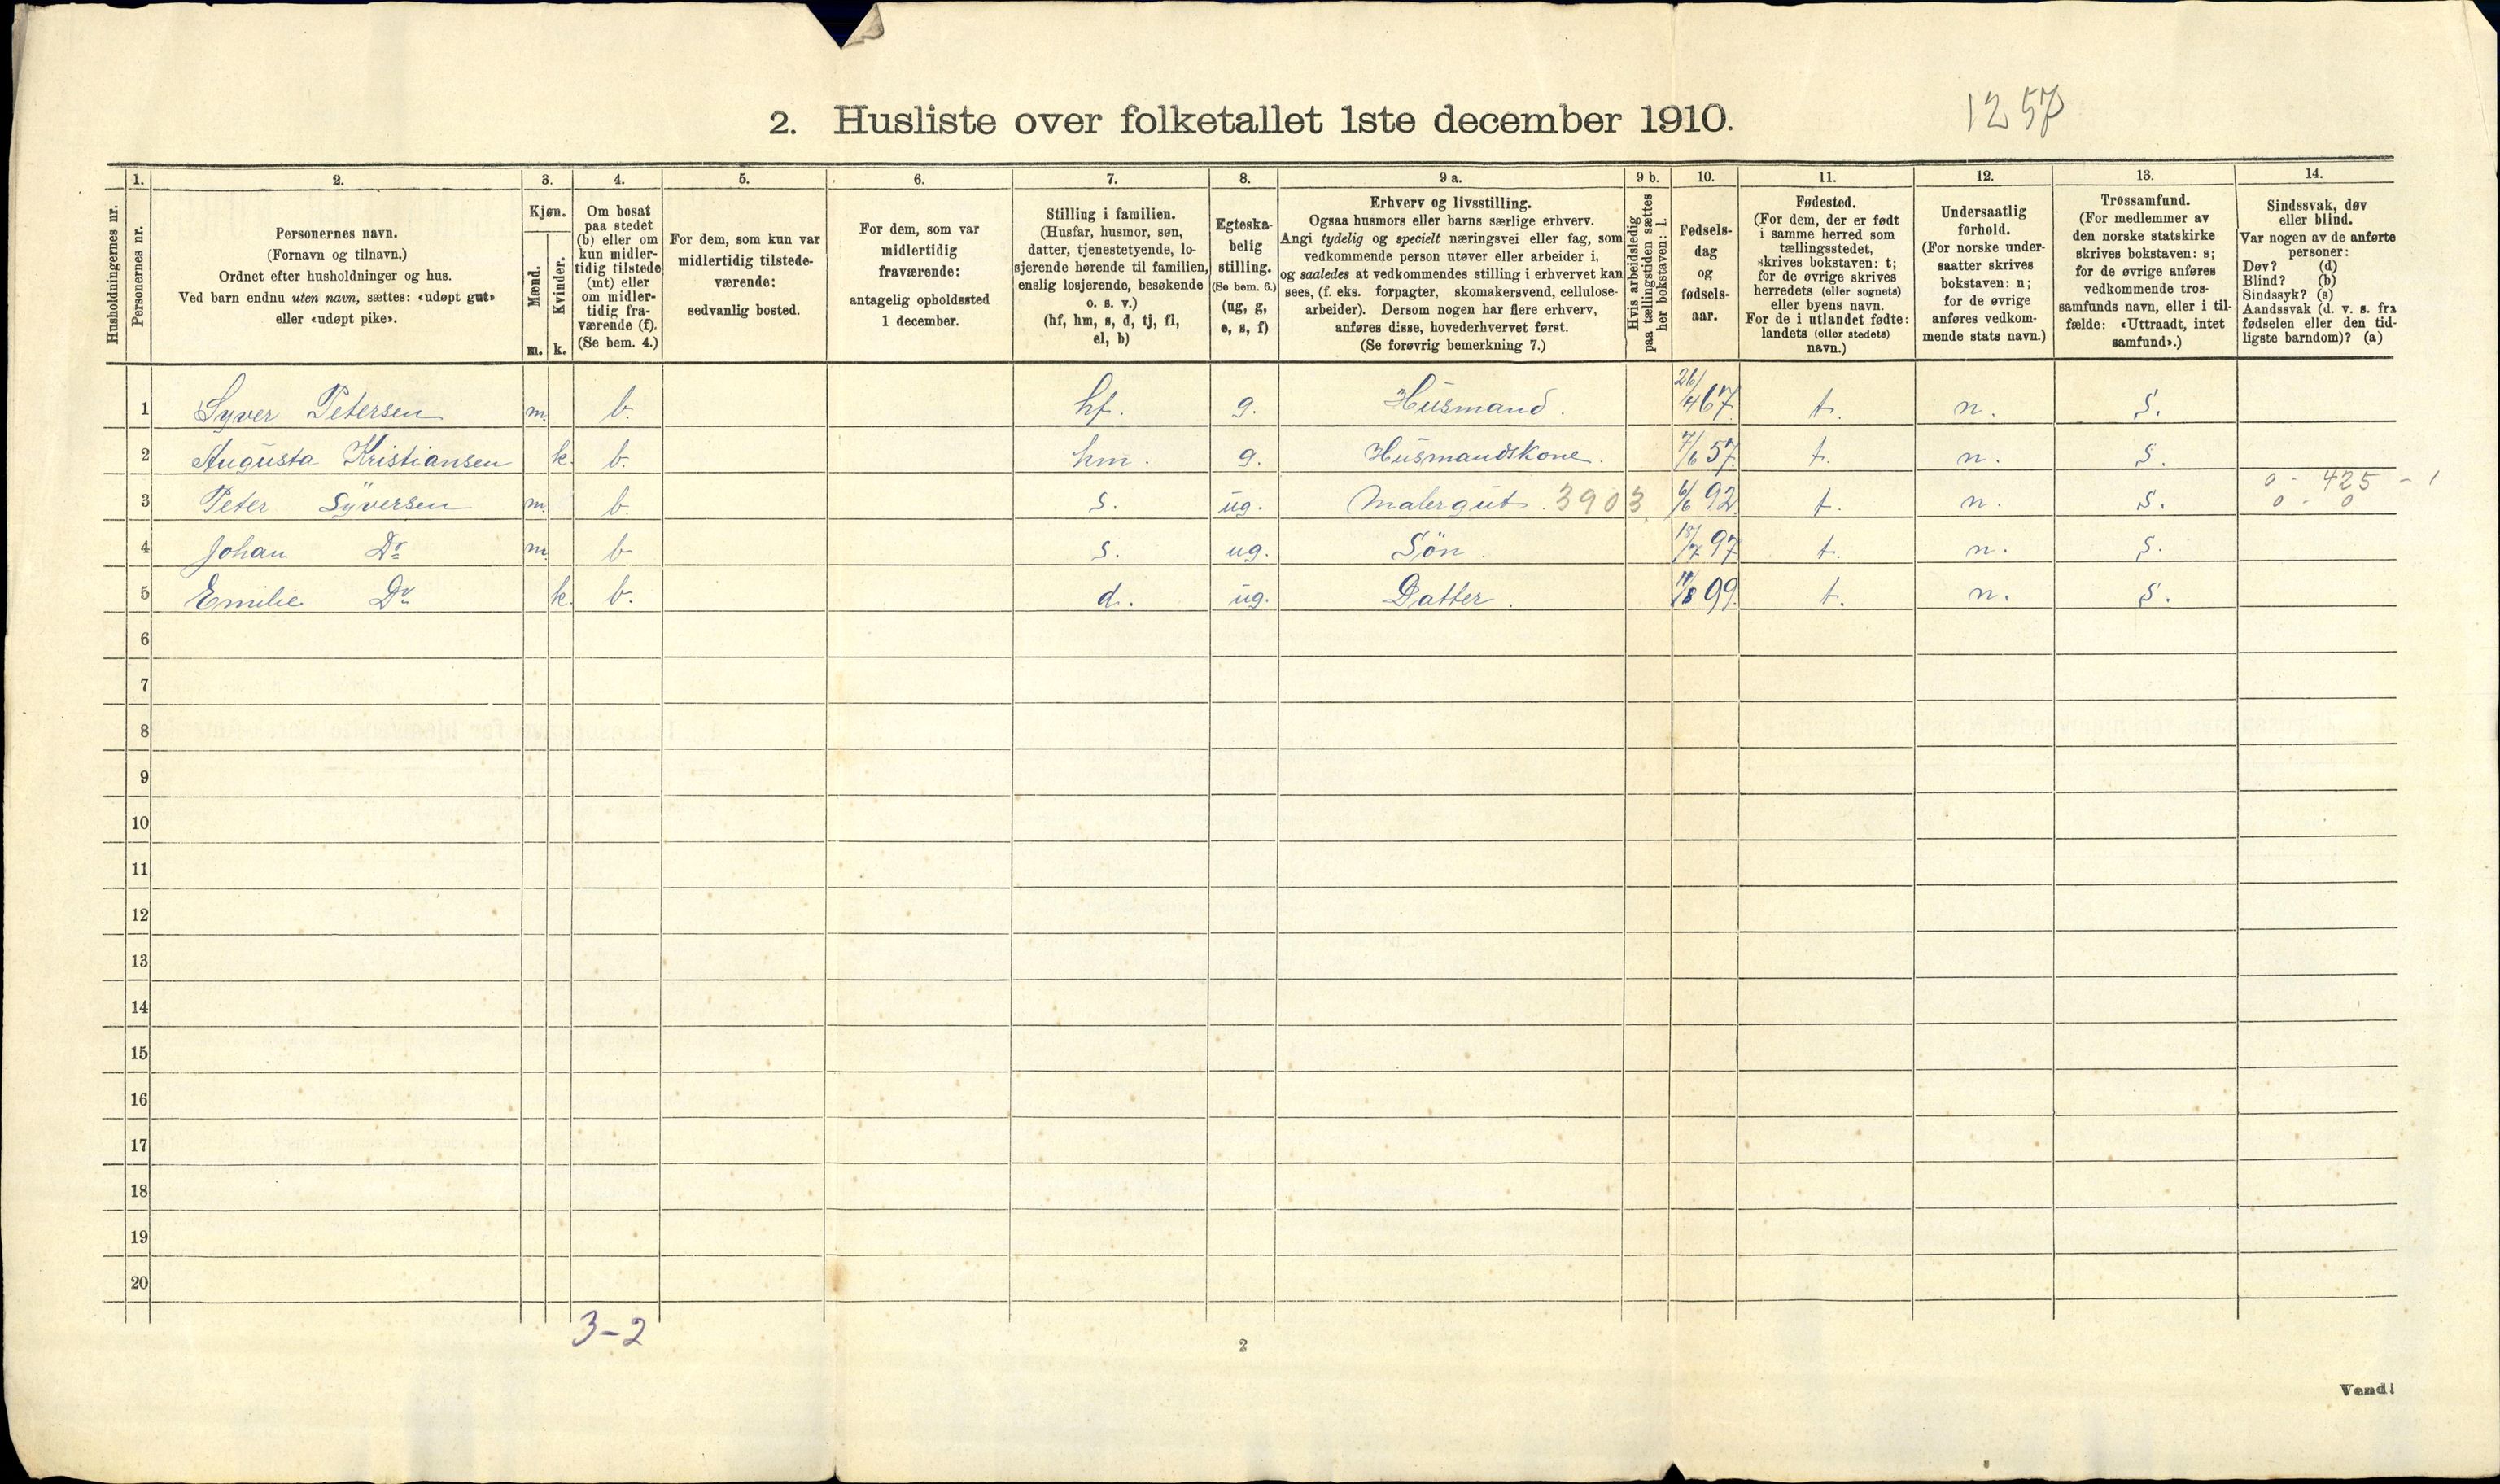 2. Husliste over folketallet 1ste december 1910.
1257
1. 2. 3. 4. 5. 6. 7. 8. 9 a. 9 b. 10. 11. 12. 13. 14.
Husholdningernes nr.
Personernes nr.
Personernes navn.
(Fornavn og tilnavn.)
Ordnet efter husholdninger og hus.
Ved barn endnu uten navn, sættes: «udøpt gut»
eller «udøpt pike».
Kjøn.
Mænd.
Kvinder.
m. k.
Om bosat
paa stedet
(b) eller om
kun midler-
tidig tilstede
(mt) eller
om midler-
tidig fra-
værende (f).
(Se bem. 4.)
For dem, som kun var
midlertidig tilstede-
værende:
sedvanlig bosted.
For dem, som var
midlertidig
fraværende:
antagelig opholdssted
1 december.
Stilling i familien.
(Husfar, husmor, søn,
datter, tjenestetyende, lo-
sjerende hørende til familien,
enslig losjerende, besøkende
o. s. v.)
(hf, hm, s, d, tj, fl,
el, b)
Egteska-
belig
stilling.
(Se bem. 6.)
(ug, g,
e, s, f)
Erhverv og livsstilling.
Ogsaa husmors eller barns særlige erhverv.
Angi tydelig og specielt næringsvei eller fag, som
vedkommende person utøver eller arbeider i,
og saaledes at vedkommendes stilling i erhvervet kan
sees, (f. eks. forpagter, skomakersvend, cellulose-
arbeider). Dersom nogen har flere erhverv,
anføres disse, hovederhvervet først.
(Se forøvrig bemerkning 7.)
Hvis arbeidsledig
paa tællingstiden sættes
her bokstaven: l.
Fødsels-
dag
og
fødsels-
aar.
Fødested.
(For dem, der er født
i samme herred som
tællingsstedet,
skrives bokstaven: t;
for de øvrige skrives
herredets (eller sognets)
eller byens navn.
For de i utlandet fødte:
landets (eller stedets)
navn.)
Undersaatlig
forhold.
(For norske under-
saatter skrives
bokstaven: n;
for de øvrige
anføres vedkom-
mende stats navn.)
Trossamfund.
(For medlemmer av
den norske statskirke
skrives bokstaven: s;
for de øvrige anføres
vedkommende tros-
samfunds navn, eller i til-
fælde: «Uttraadt, intet
samfund».)
Sindssvak, døv
eller blind.
Var nogen av de anførte
personer:
Døv? (d)
Blind? (b)
Sindssyk? (s)
Aandssvak (d. v. s. fra
fødselen eller den tid-
ligste barndom)? (a)
1 Syver Petersen m. b. hf. g. Husmand. 26/4 67. t. n. S.
2 Augusta Kristiansen k. b. hm. g. Husmandskone. 7/6 57. t. n. S.
0 - 425 - 1
3 Peter Syversen m. b. s. ug. Malergut. 3903 6/6 92. t. n. S. 0 - 0
4 Johan Do m. b s. ug. Søn. 18/7 97. t. n. S.
5 Emilie Do k. b. d. ug. Datter. 11/8 99. t. n. S.
6
7
8
9
10
11
12
13
14
15
16
17
18
19
20
3-2
2
Vend!